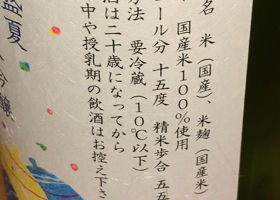 名 米(国産)、米麹(国産米)
国産米100%使用
ール分 十五度 精米歩合 五五
方法 要冷蔵(10℃以下)
酒は二十歳になってから
中や授乳期の飲酒はお控え下さ
盛夏
吟醸